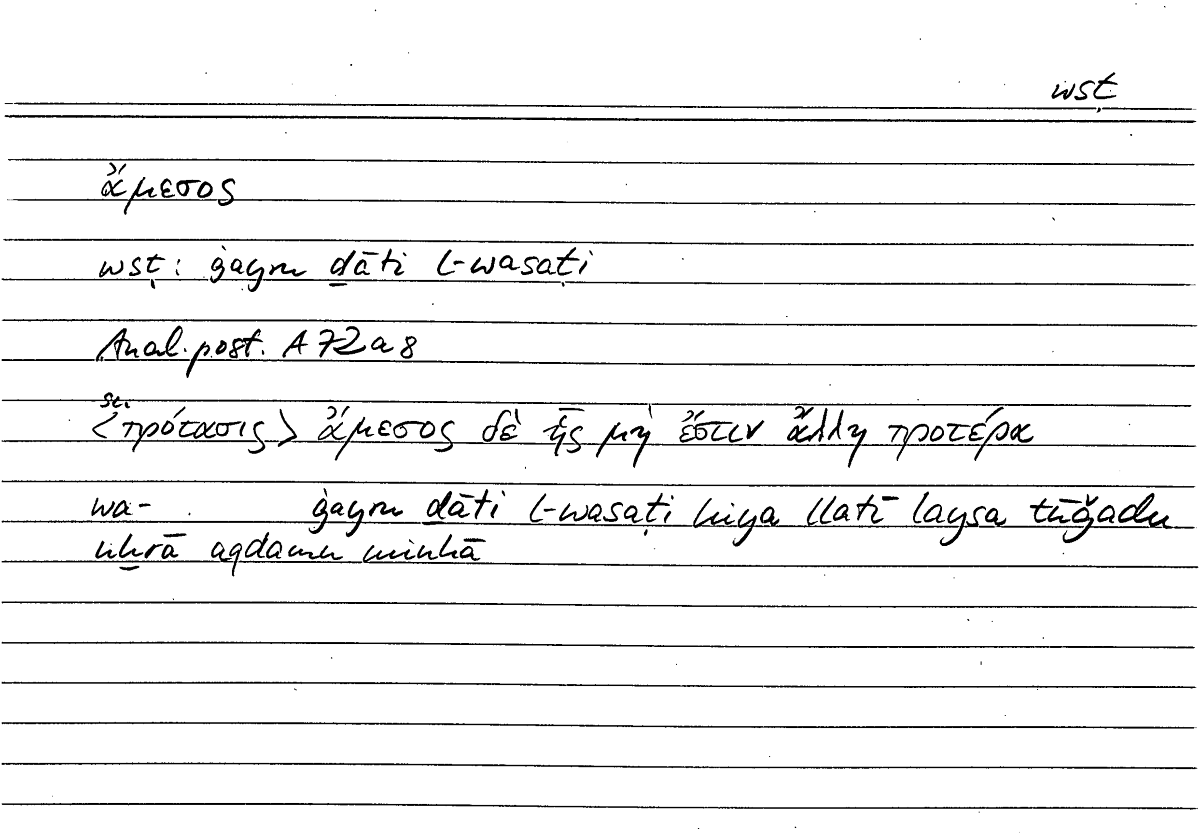 wsṭ
ἄμεσος
wsṭ: ġayru ḏāti l-wasaṭi
Anal. post. A 72 a 8
sc.
<πρότασις> ἄμεσος δὲ ἧς μὴ ἔστιν ἄλλη προτέρα
wa- . ġayru ḏāti l-wasaṭi hiya llatī laysa tūǧadu
uḫrā aqdamu minhā